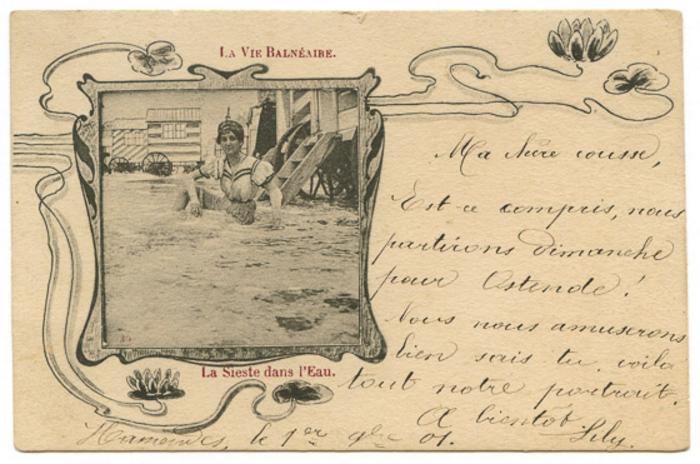 La Vie Balnéaire.
La Sieste dans l'Eau.
Ma chère cousse,
Est-ce compris, nous
partirons Dimanche
pour Ostende!
Nous nous amuserons
bien sais tu. voila
tout notre portrait.
A bientot
Lily.
le 1er 01.